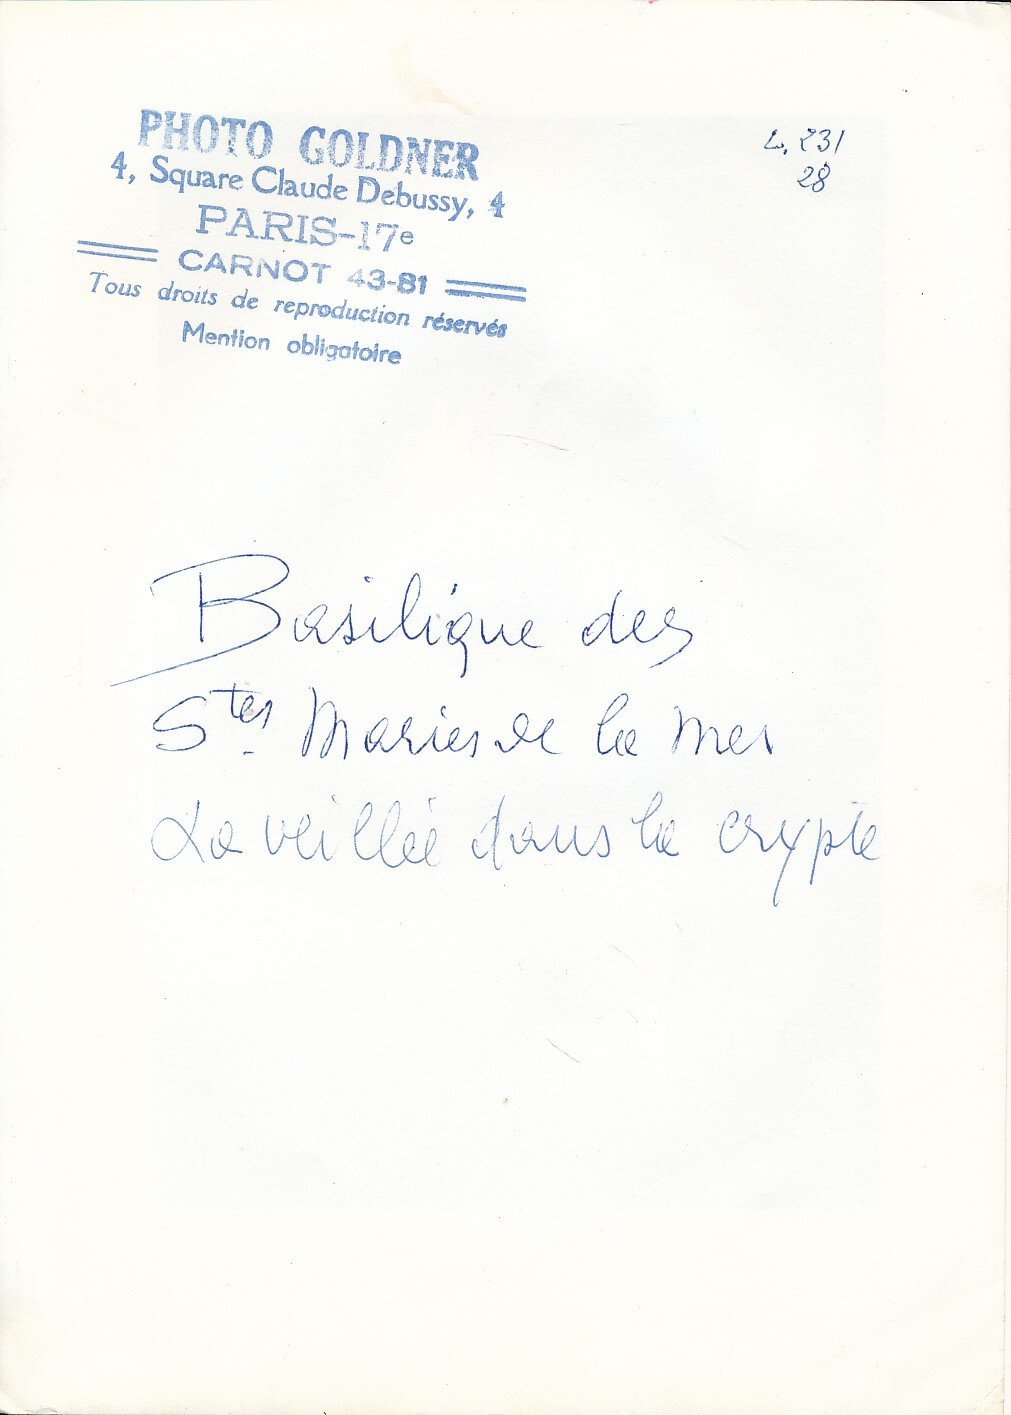 PHOTO GOLDNER
4, Square Claude Debussy, 4
PARIS-17e
CARNOT 43-81
Tous droits de reproduction réservés
Mention obligatoire
L. 231
28
Basilique des
Stes Maries de la Mer
La veillée dans la crypte